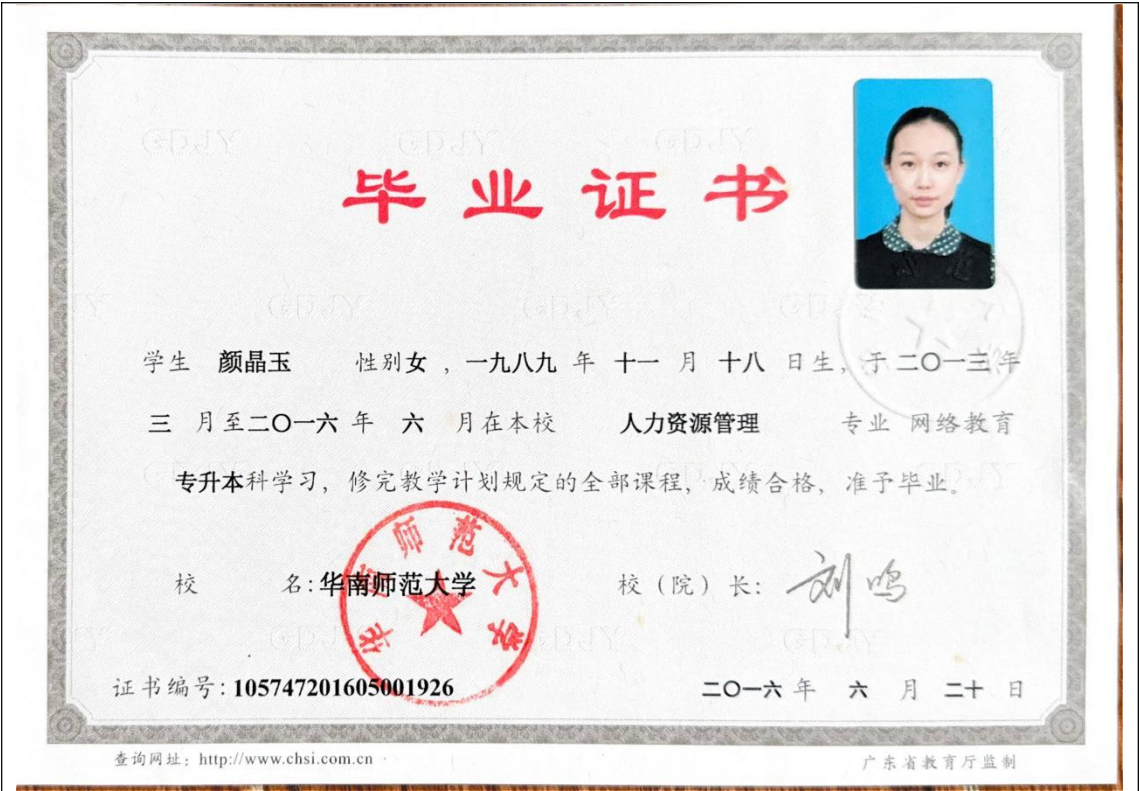 毕业证书
学生 颜晶玉 性别女，一九八九 年 十一 月 十八 日生，于二〇一三年
三 月至二〇一六 年 六 月在本校 人力资源管理 专业 网络教育
专升本科学习，修完教学计划规定的全部课程，成绩合格，准予毕业。
校 名：华南师范大学 校（院）长：刘鸣
华南师范大学
证书编号：105747201605001926 二〇一六 年 六 月 二十 日
查询网址：http://www.chsi.com.cn 广东省教育厅监制